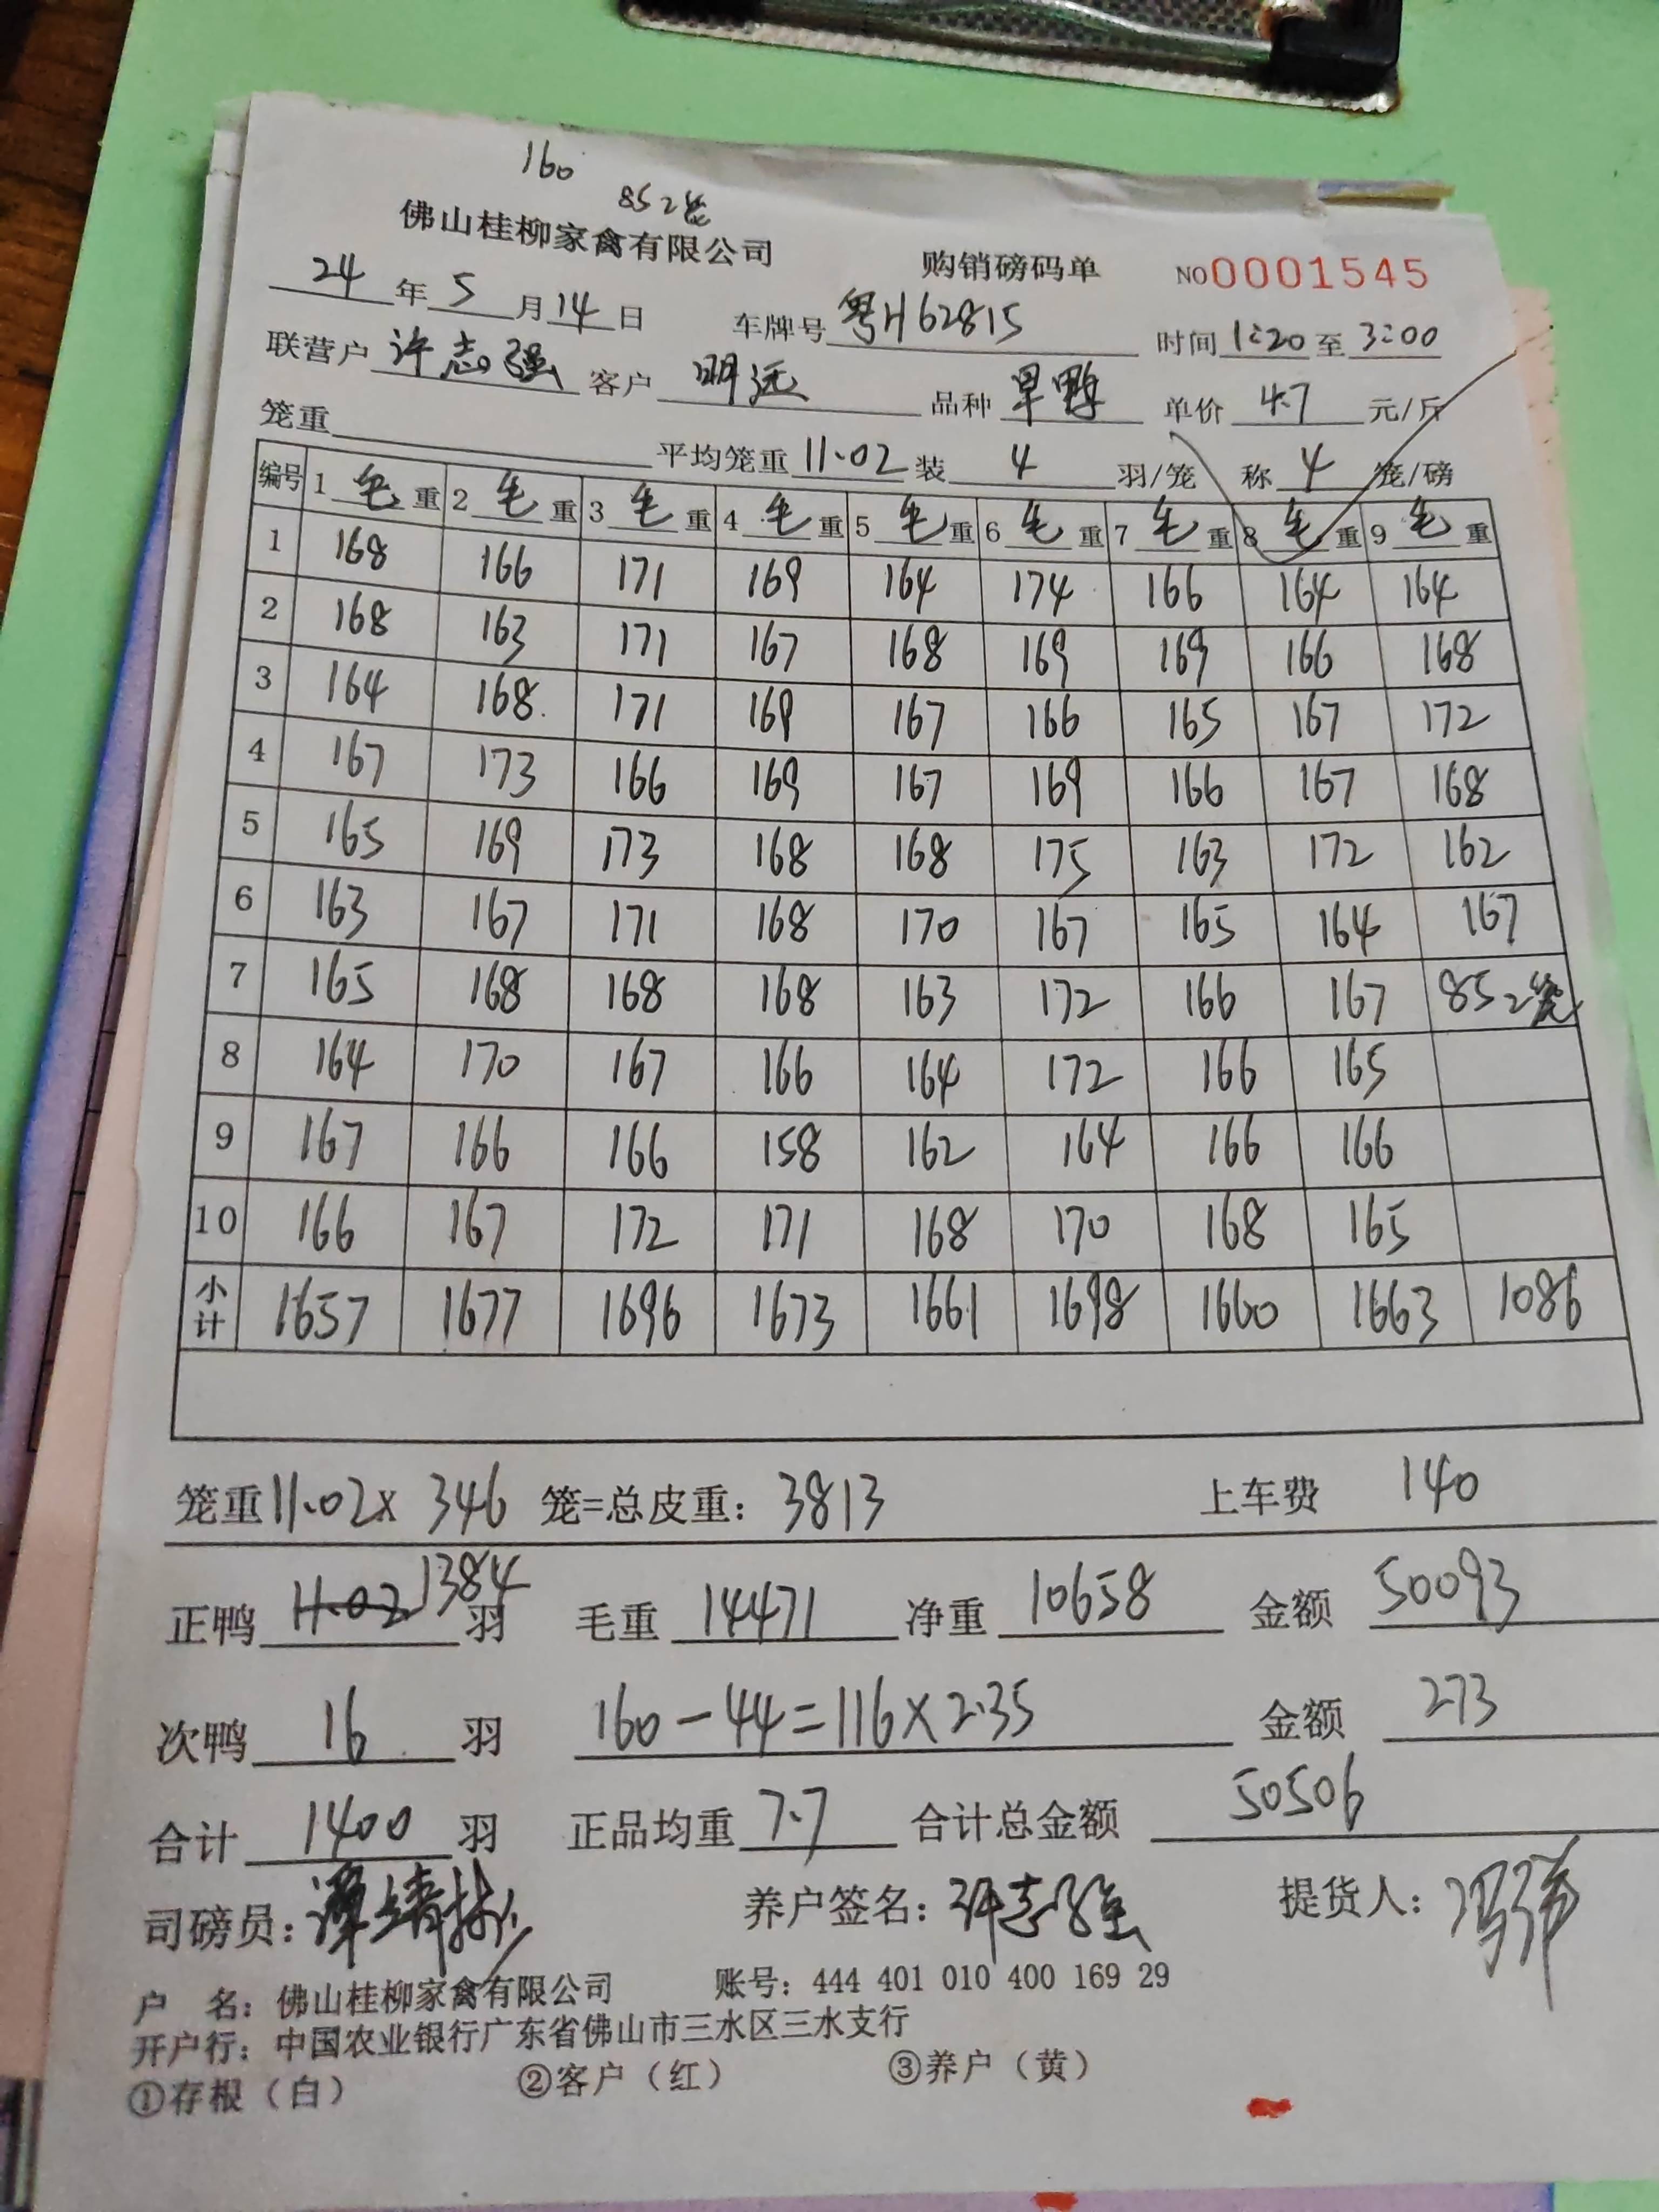 160
852笼
佛山桂柳家禽有限公司 购销磅码单 NO 0001545
24年5月14日 车牌号 粤H62815 时间 1:20 至 3:00
联营户 许志强 客户 明远 品种 单价 4.7 元/斤
笼重 平均笼重 11.02 装 4 羽/笼 称 4 笼/磅
编号 1 毛 重 2 毛 重 3 毛 重 4 毛 重 5 毛 重 6 毛 重 7 毛 重 8 毛 重 9 毛 重
1 168 166 171 169 164 174 166 164 164
2 168 163 171 167 168 169 169 166 168
3 164 168 171 169 167 166 165 167 172
4 167 173 166 169 167 169 166 167 168
5 165 169 173 168 168 175 163 172 162
6 163 167 171 168 170 167 165 164 167
7 165 168 168 168 163 172 166 167 85 2笼
8 164 170 167 166 164 172 166 165
9 167 166 166 158 162 164 166 166
10 166 167 172 171 168 170 168 165
小计 1657 1677 1696 1673 1661 1698 1660 1663 1086
笼重 11.02 x 346 笼=总皮重: 3813 上车费 140
正鸭 11.02 1384 羽 毛重 14471 净重 10658 金额 50093
次鸭 16 羽 160-44=116×2.35 金额 273
合计 1400 羽 正品均重 7.7 合计总金额 50506
司磅员: 养户签名: 许志强 提货人:
户 名: 佛山桂柳家禽有限公司 账号: 444 401 010 400 169 29
开户行: 中国农业银行广东省佛山市三水区三水支行
①存根（白） ②客户（红） ③养户（黄）